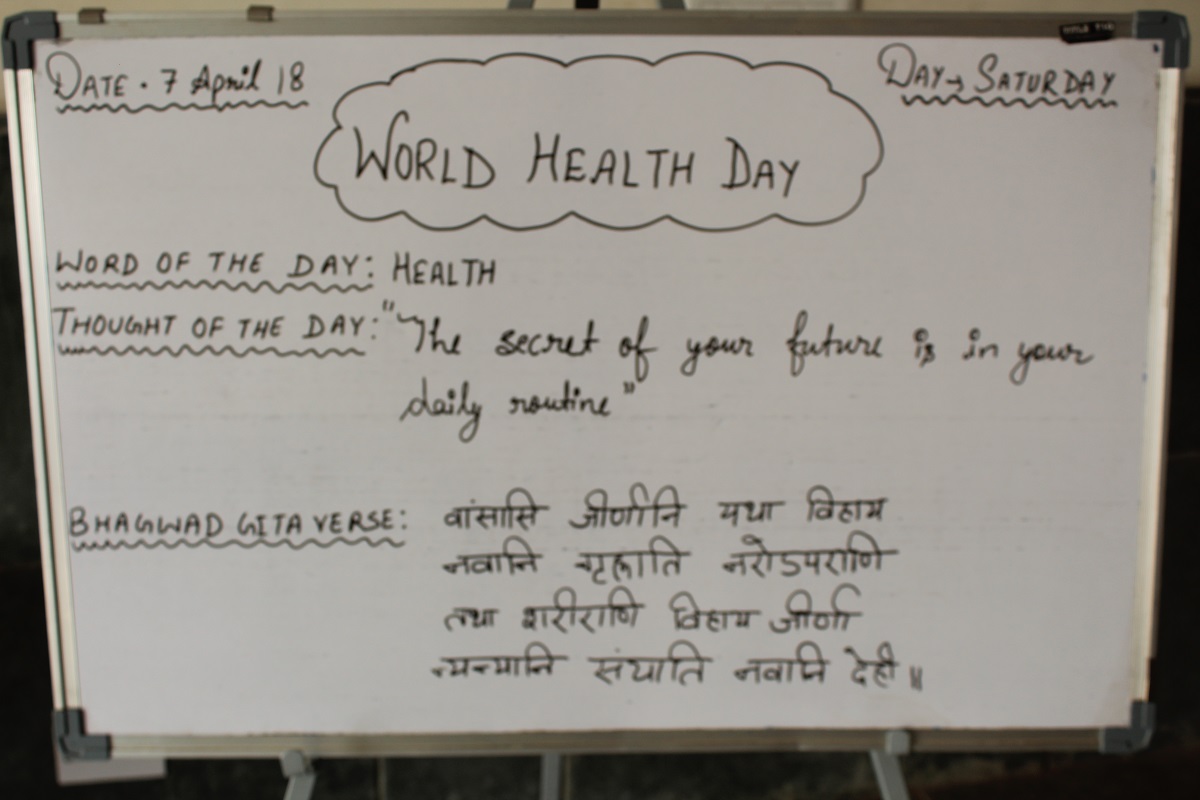 DATE . 7 April 18
DAY → SATURDAY
WORLD HEALTH DAY
WORD OF THE DAY: HEALTH
THOUGHT OF THE DAY: "The secret of your future is in your
daily routine"
BHAGWAD GITA VERSE: वांसासि जीर्णानि यथा विहाय
नवानि गृह्णाति नरोऽपराणि
तथा शरीराणि विहाय जीर्णा
न्यन्यानि संयाति नवानि देही ॥